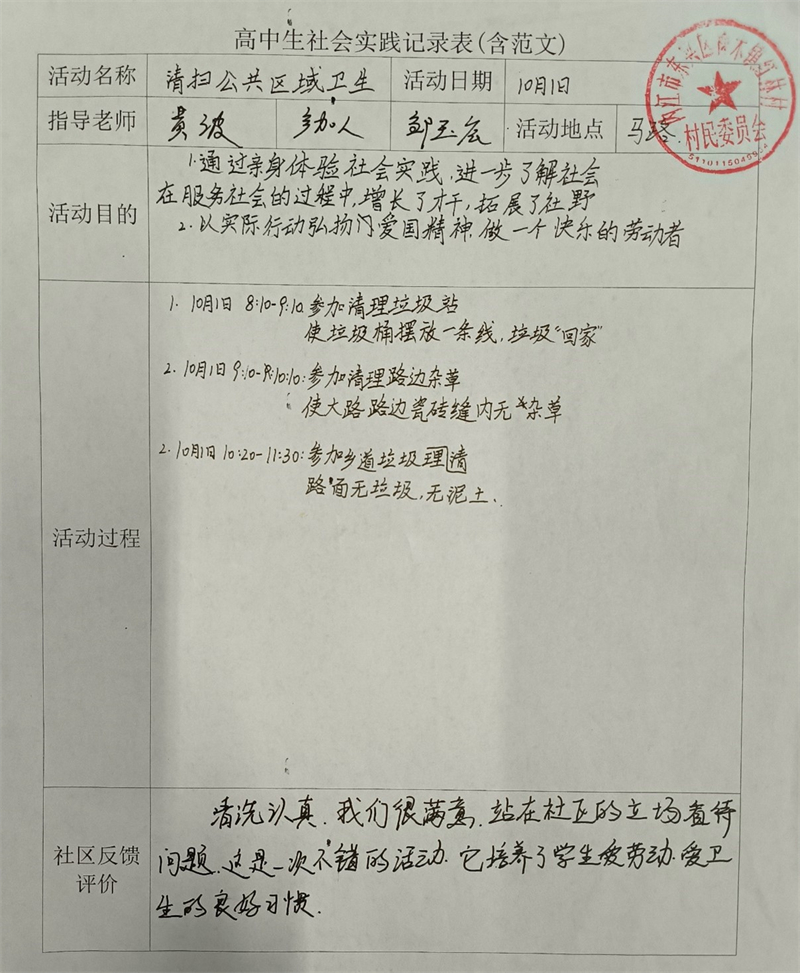 高中生社会实践记录表(含范文)
活动名称 清扫公共区域卫生 活动日期 10月1日
指导老师 黄波 参加人 邹玉宏 活动地点 马路.
村民委员会
活动目的
1.通过亲身体验社会实践,进一步了解社会
在服务社会的过程中,增长了才干,拓展了社野
2.以实际行动弘扬门爱国精神.做一个快乐的劳动者
活动过程
1. 10月1日 8:10-9:10.参加清理垃圾站
使垃圾桶摆放一条线,垃圾“回家”
2.10月1日9:10-10:10:参加清理路边杂草
使大路路边瓷砖缝内无杂草
2.10月1日 10:20-11:30:参加乡道垃圾理清
路面无垃圾,无泥土.
社区反馈
评价
清洗认真.我们很满意.站在社区的立场看待
问题.这是一次不错的活动.它培养了学生爱劳动.爱卫
生的良好习惯.